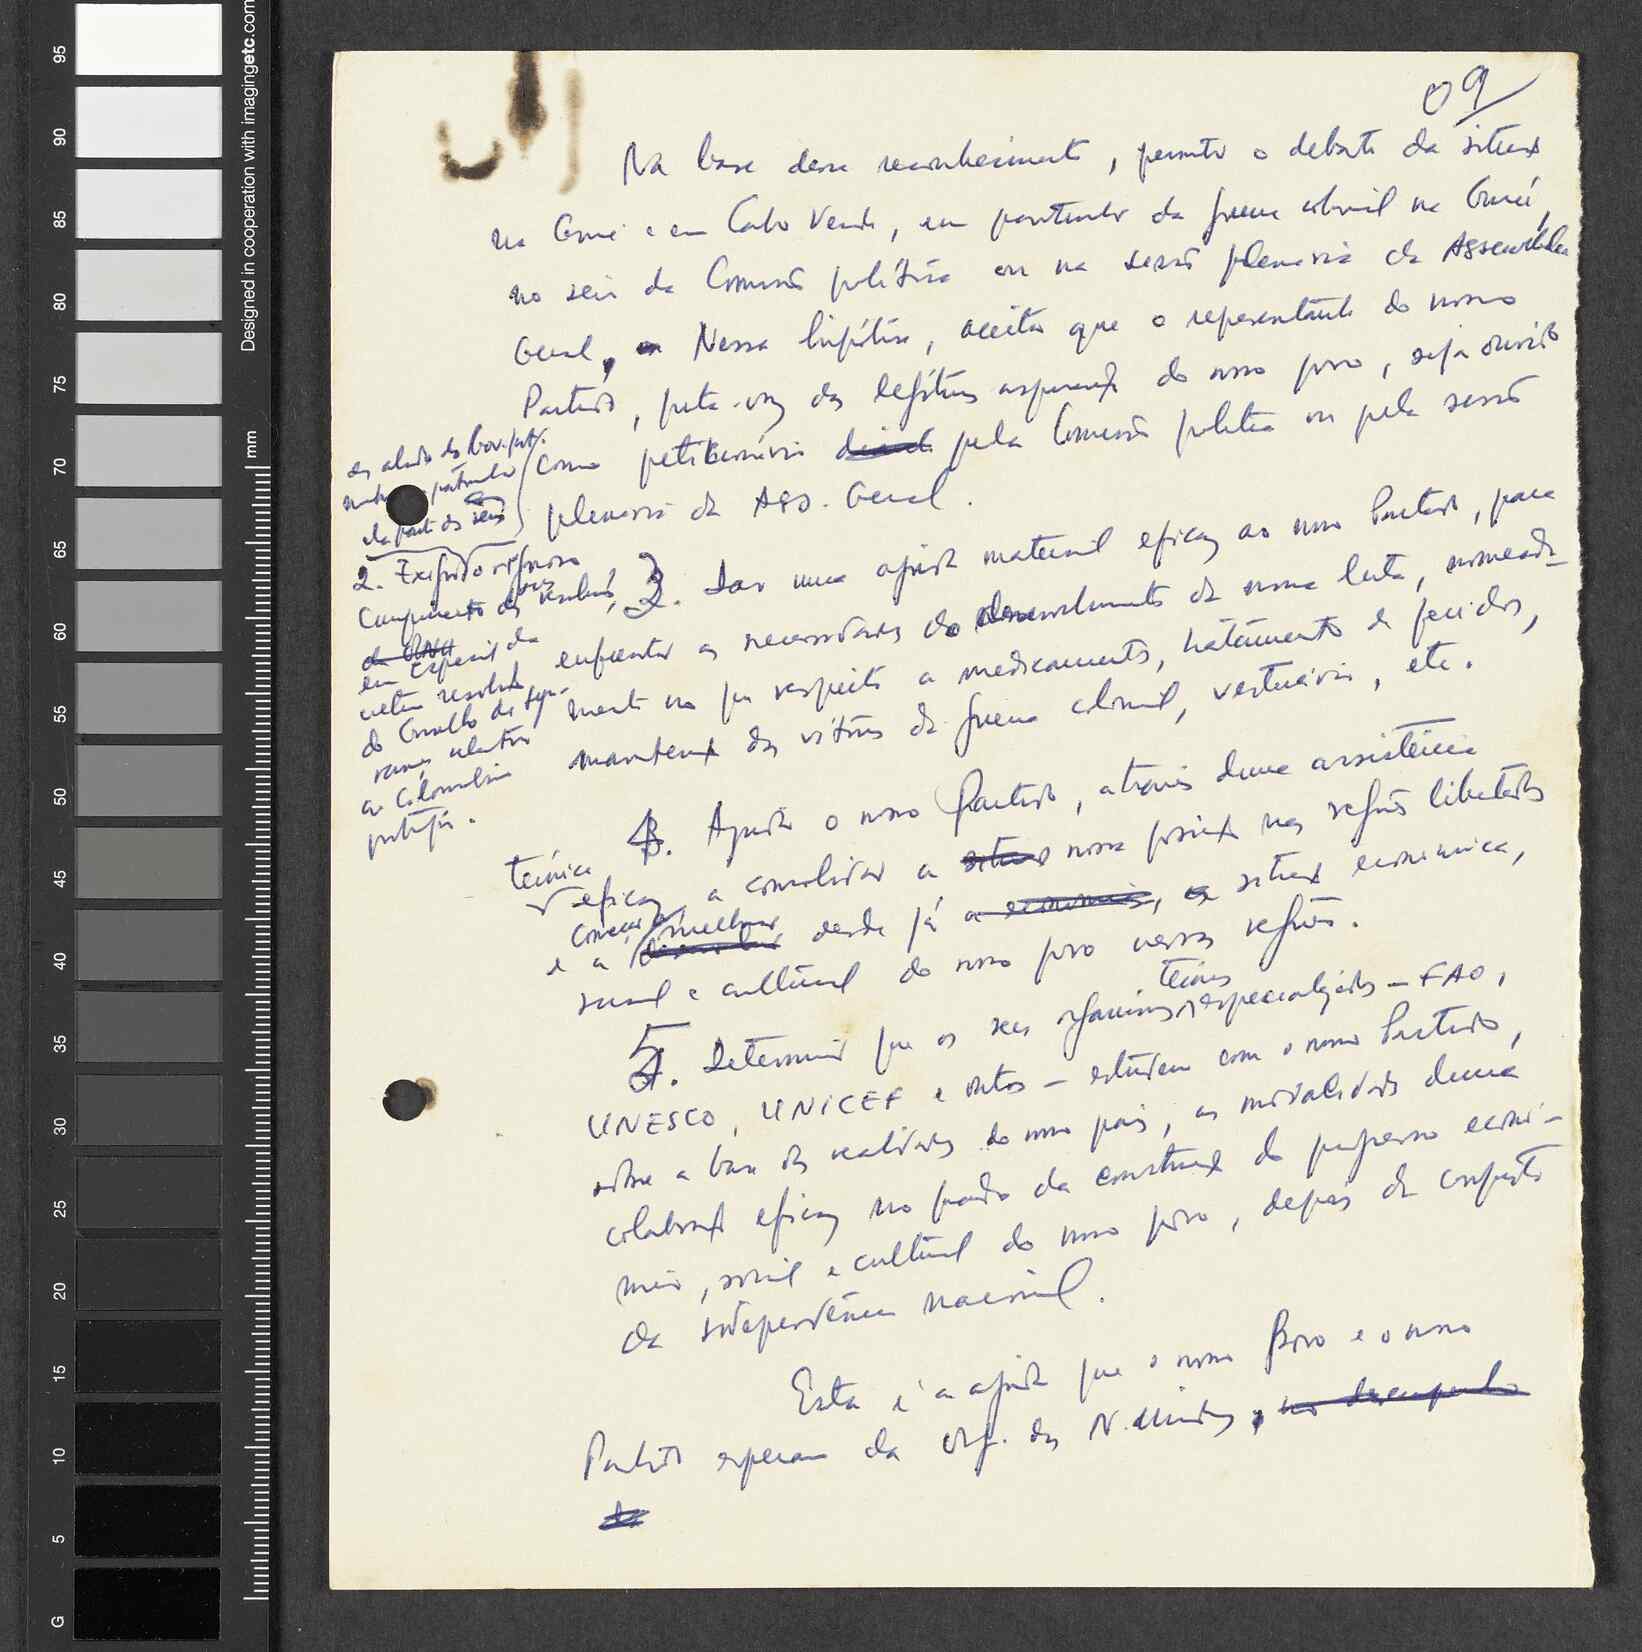 09
Na base desse reconhecimento, permitir o debate da situação
na Guiné e em Cabo Verde, em particular da guerra colonial na Guiné,
no seio da Comissão política ou na sessão plenária da Assembleia
Geral, Nessa hipótese, aceitar que o representante do nosso
Partido, porta-voz das legítimas aspirações do nosso povo, seja ouvido
como peticionário pela Comissão política ou pela sessão
plenária da Ass. Geral.
2. Exigir o rigoroso
cumprimento das resoluções,
da ONU
em especial da
resolução
do Conselho de Segu-
rança relativa
ao Colonialismo
português.
3. Dar uma ajuda material eficaz ao nosso Partido, para
enfrentar as necessidades do desenvolvimento da nossa luta, nomeada-
mente no que respeita a medicamentos, tratamento de feridos,
manutenção das vítimas da guerra colonial, vestuário, etc.
4. Ajudar o nosso Partido, através duma assistência
técnica eficaz, a consolidar a nossa posição nas regiões libertadas
e a começar a melhorar desde já a economia, a situação económica,
social e cultural do nosso povo nessas regiões.
5. Determinar que os seus organismos técnicos especializados — FAO,
UNESCO, UNICEF e outros — estudem com o nosso Partido,
sobre a base das realidades do nosso país, as modalidades duma
colaboração eficaz no quadro da construção do progresso econó-
mico, social e cultural do nosso povo, depois da conquista
da independência nacional.
Esta é a ajuda que o nosso Povo e o nosso
Partido esperam da Org. das N. Unidas, no desempenho
Designed in cooperation with imagingetc.com
mm
95
90
85
80
75
70
65
60
55
50
45
40
35
30
25
20
15
10
5
G